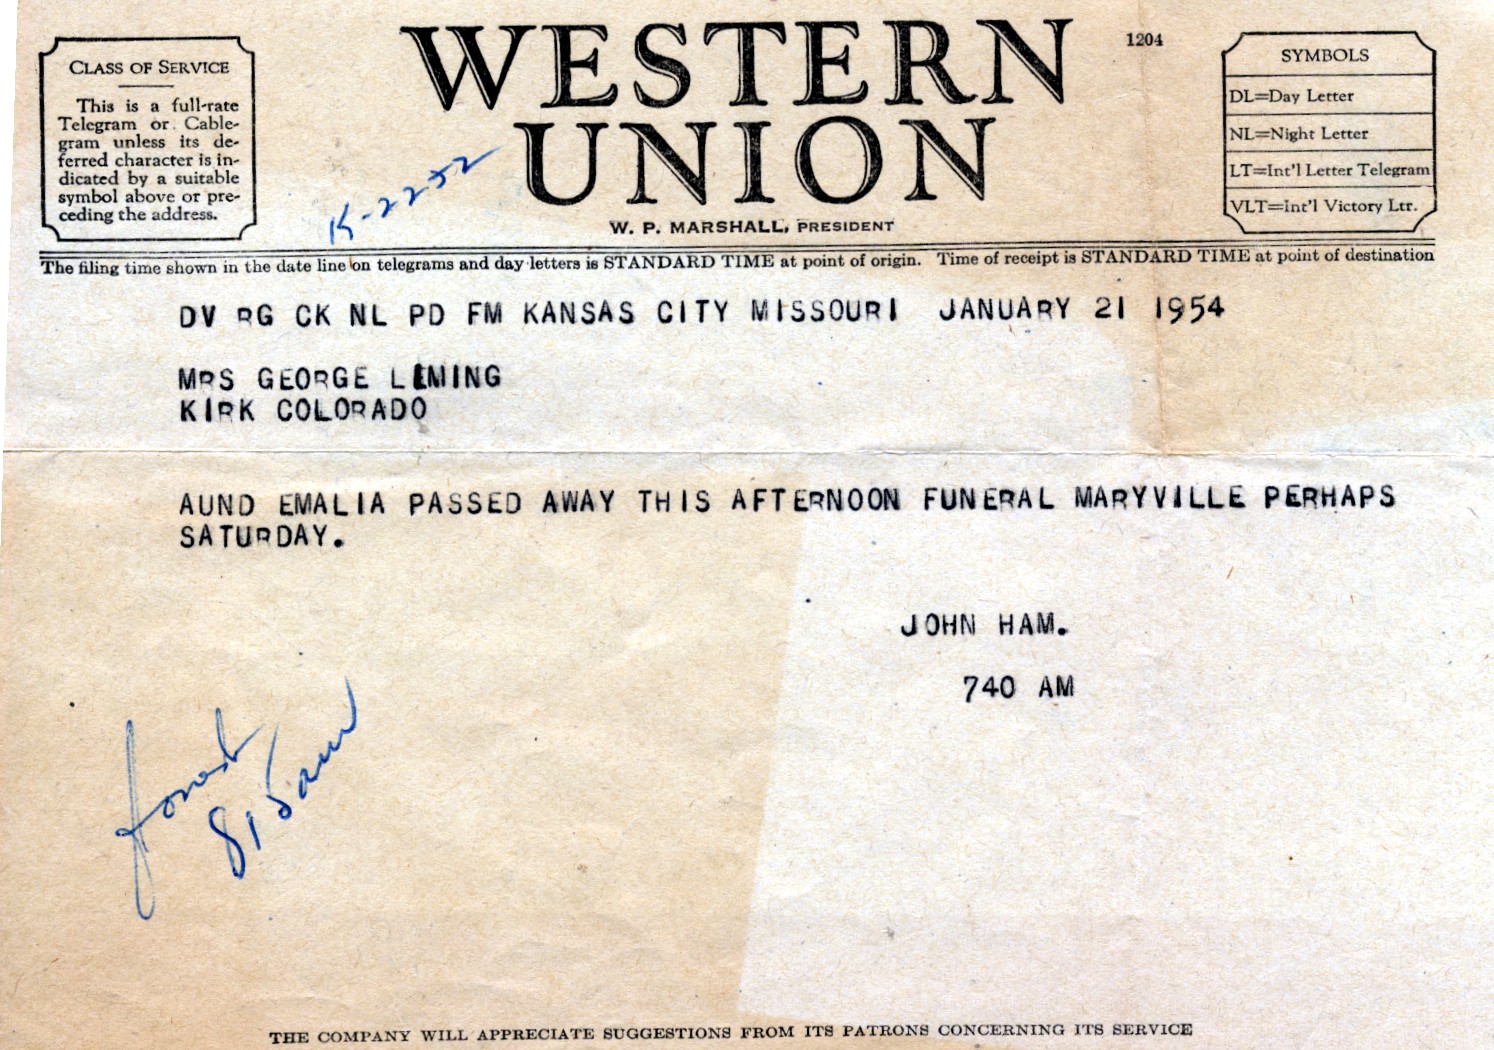 CLASS OF SERVICE
This is a full-rate
Telegram or Cable-
gram unless its de-
ferred character is in-
dicated by a suitable
symbol above or pre-
ceding the address.
WESTERN
UNION
1204
W. P. MARSHALL, PRESIDENT
SYMBOLS
DL=Day Letter
NL=Night Letter
LT=Int'l Letter Telegram
VLT=Int'l Victory Ltr.
K-2252
The filing time shown in the date line on telegrams and day letters is STANDARD TIME at point of origin. Time of receipt is STANDARD TIME at point of destination
DV RG CK NL PD FM KANSAS CITY MISSOURI JANUARY 21 1954
MRS GEORGE LIMING
KIRK COLORADO
AUND EMALIA PASSED AWAY THIS AFTERNOON FUNERAL MARYVILLE PERHAPS
SATURDAY.
JOHN HAM.
740 AM
815am
THE COMPANY WILL APPRECIATE SUGGESTIONS FROM ITS PATRONS CONCERNING ITS SERVICE